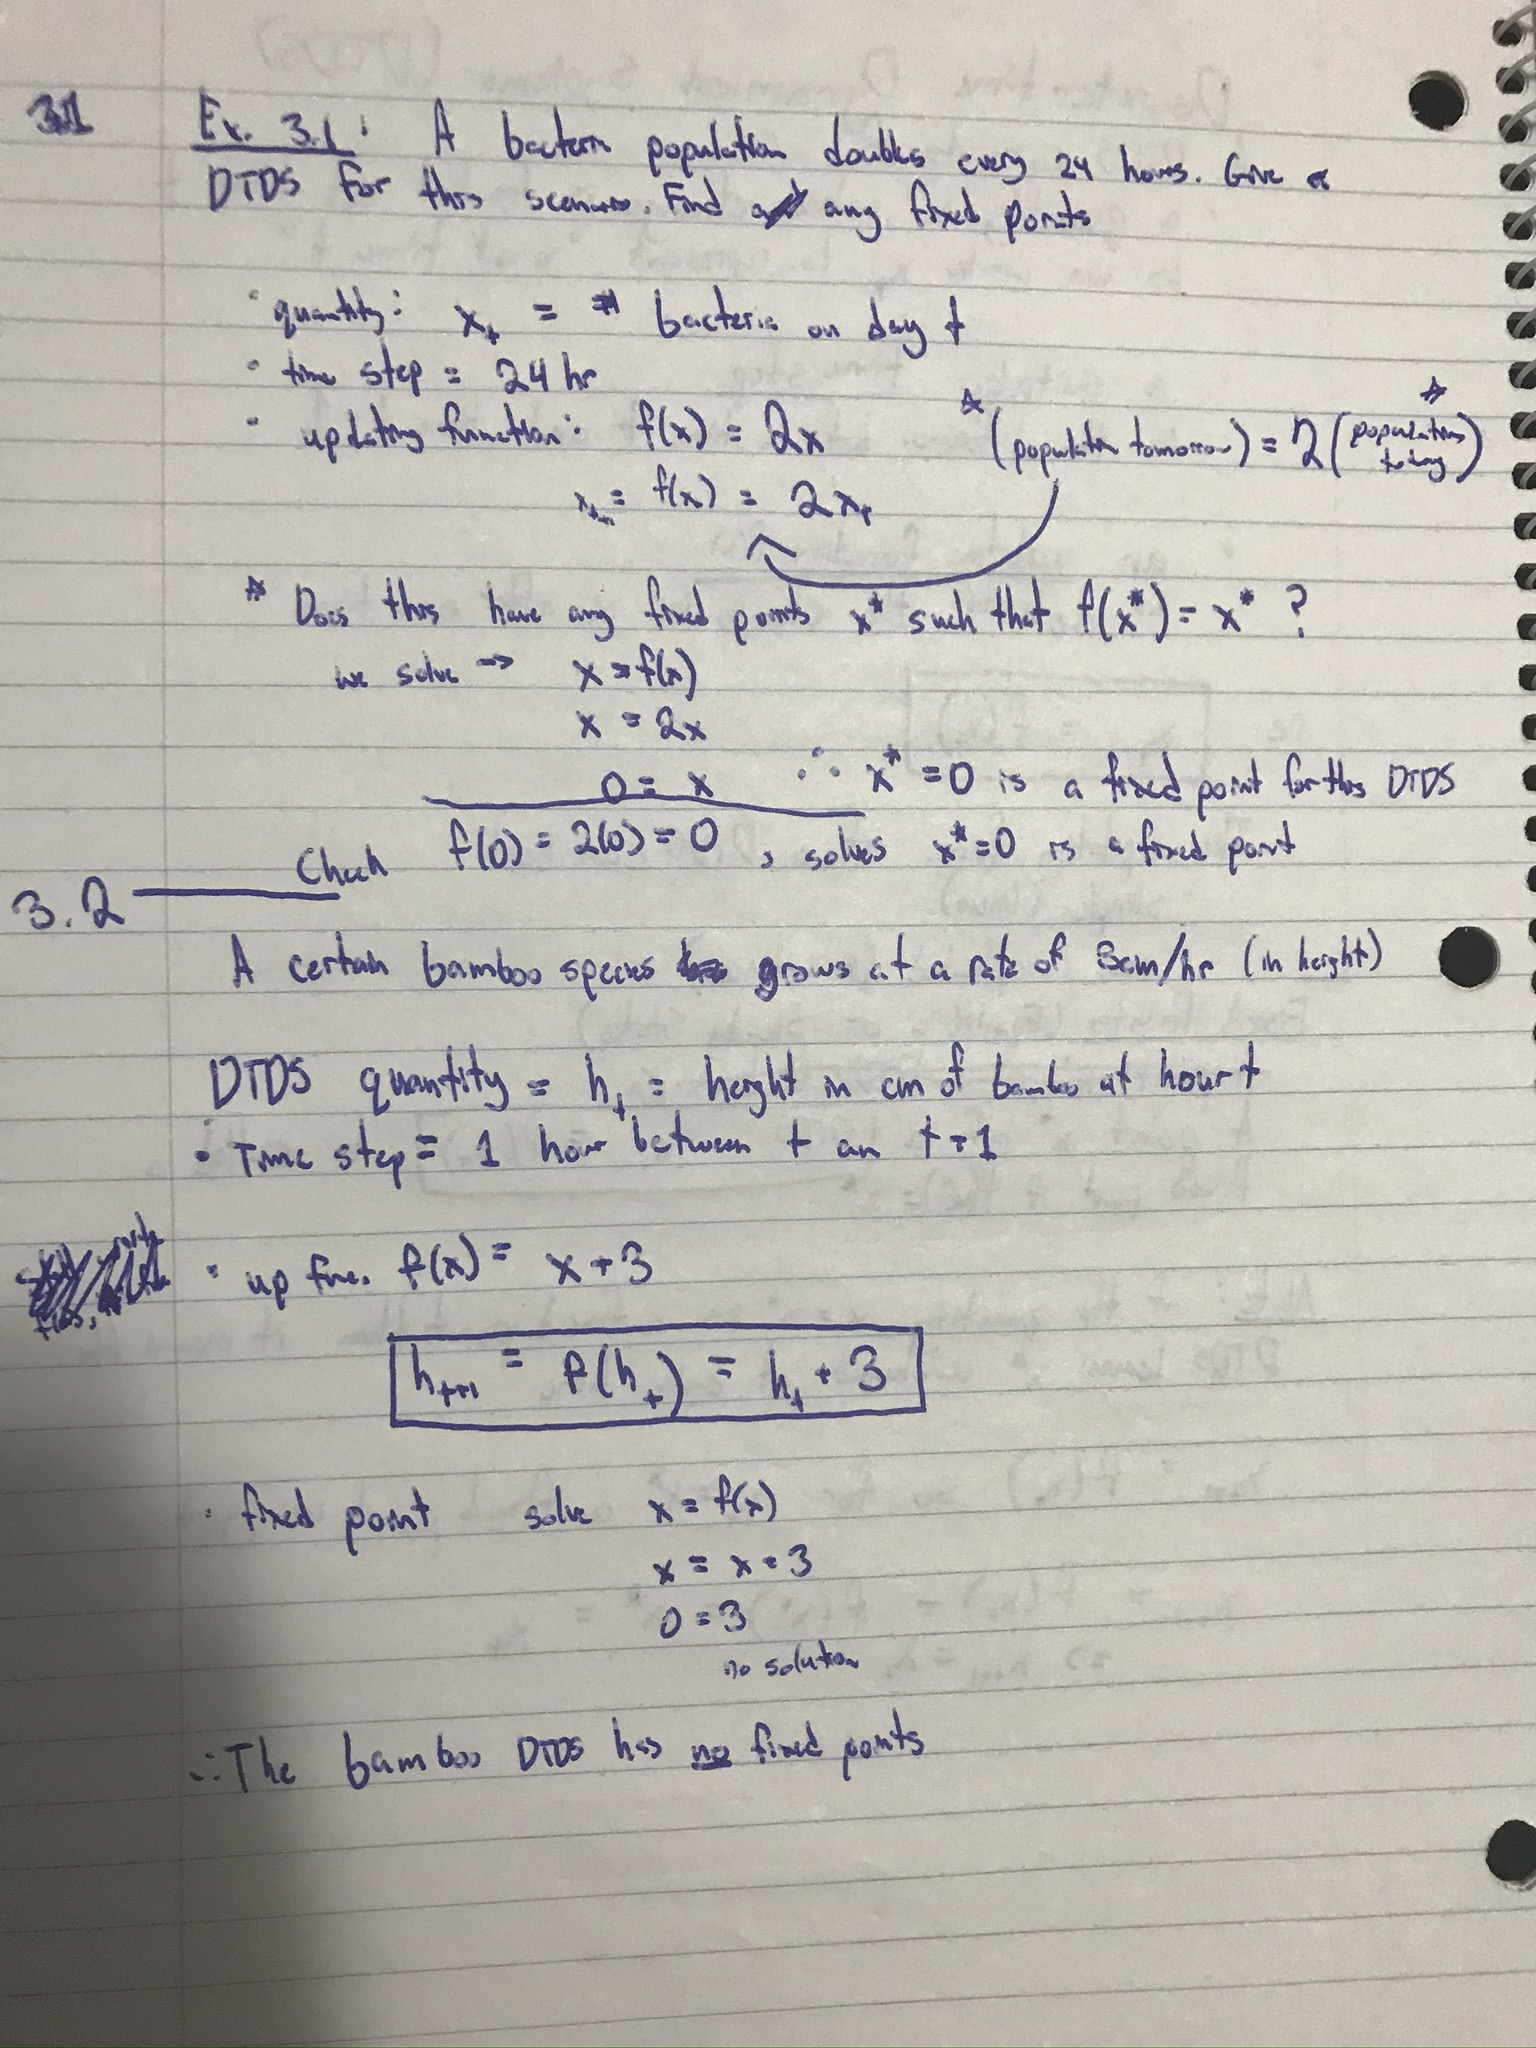 3.1 Ex. 3.1: A bacteria population doubles every 24 hours. Give a
DTDS for this scenario. Find any fixed points
· quantity: x_t = # bacteria on day t
· time step = 24 hr
· updating function: f(x) = 2x
* (population tomorrow) = 2 (population today) *
x_t+1 = f(x) = 2x_t
* Does this have any fixed points x* such that f(x*) = x* ?
we solve → x = f(x)
x = 2x
0 = x ∴ x* = 0 is a fixed point for this DTDS
Check f(0) = 2(0) = 0, solves x* = 0 is a fixed point
3.2
A certain bamboo species grows at a rate of 3cm/hr (in height)
DTDS quantity = h_t = height in cm of bamboo at hour t
· Time step = 1 hour between t an t+1
· up func. f(x) = x + 3
h_t+1 = f(h_t) = h_t + 3
· fixed point solve x = f(x)
x = x + 3
0 = 3
no solution
∴ The bamboo DTDS has no fixed points